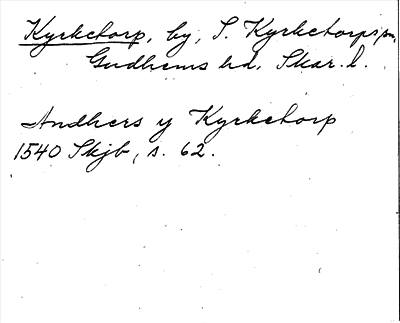 Kyrketorp, by, S. Kyrketorps sn,
Gudhems hd, Skar. l.
Andhers y Kyrketorp
1540 Skjb, s. 62.